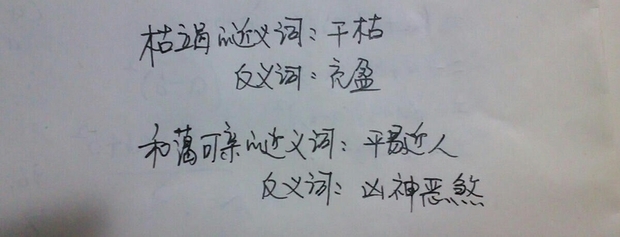 枯竭的近义词：干枯
反义词：充盈
和蔼可亲的近义词：平易近人
反义词：凶神恶煞